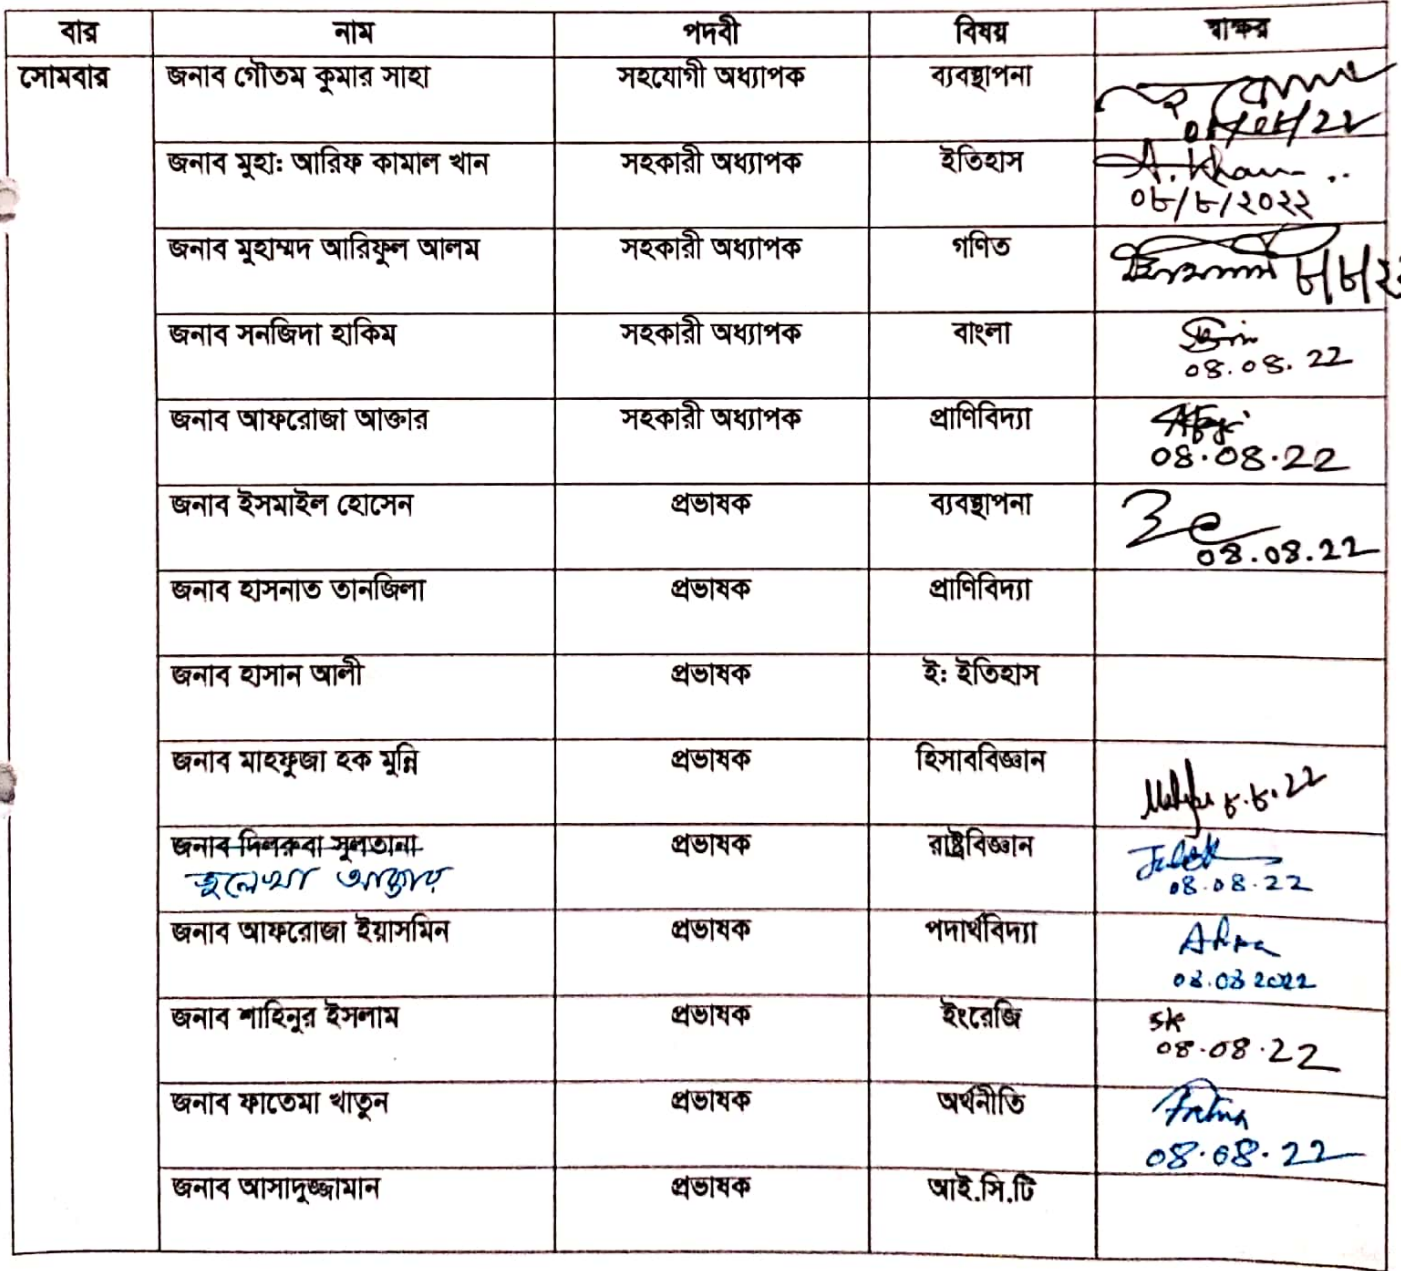 বার নাম পদবী বিষয় স্বাক্ষর
সোমবার জনাব গৌতম কুমার সাহা সহযোগী অধ্যাপক ব্যবস্থাপনা
০৮/০৮/22
জনাব মুহা: আরিফ কামাল খান সহকারী অধ্যাপক ইতিহাস A. Khan
০৮/৮/২০২২
জনাব মুহাম্মদ আরিফুল আলম সহকারী অধ্যাপক গণিত ৮/৮/২
জনাব সনজিদা হাকিম সহকারী অধ্যাপক বাংলা
08.08.22
জনাব আফরোজা আক্তার সহকারী অধ্যাপক প্রাণিবিদ্যা
08.08.22
জনাব ইসমাইল হোসেন প্রভাষক ব্যবস্থাপনা
08.08.22
জনাব হাসনাত তানজিলা প্রভাষক প্রাণিবিদ্যা
জনাব হাসান আলী প্রভাষক ই: ইতিহাস
জনাব মাহফুজা হক মুন্নি প্রভাষক হিসাববিজ্ঞান
৮.৮.22
জনাব দিলরুবা সুলতানা প্রভাষক রাষ্ট্রবিজ্ঞান
জুলেখা আক্তার 08.08.22
জনাব আফরোজা ইয়াসমিন প্রভাষক পদার্থবিদ্যা
08.08 2022
জনাব শাহিনুর ইসলাম প্রভাষক ইংরেজি SK
08.08.22
জনাব ফাতেমা খাতুন প্রভাষক অর্থনীতি Fatima
08.08.22
জনাব আসাদুজ্জামান প্রভাষক আই.সি.টি